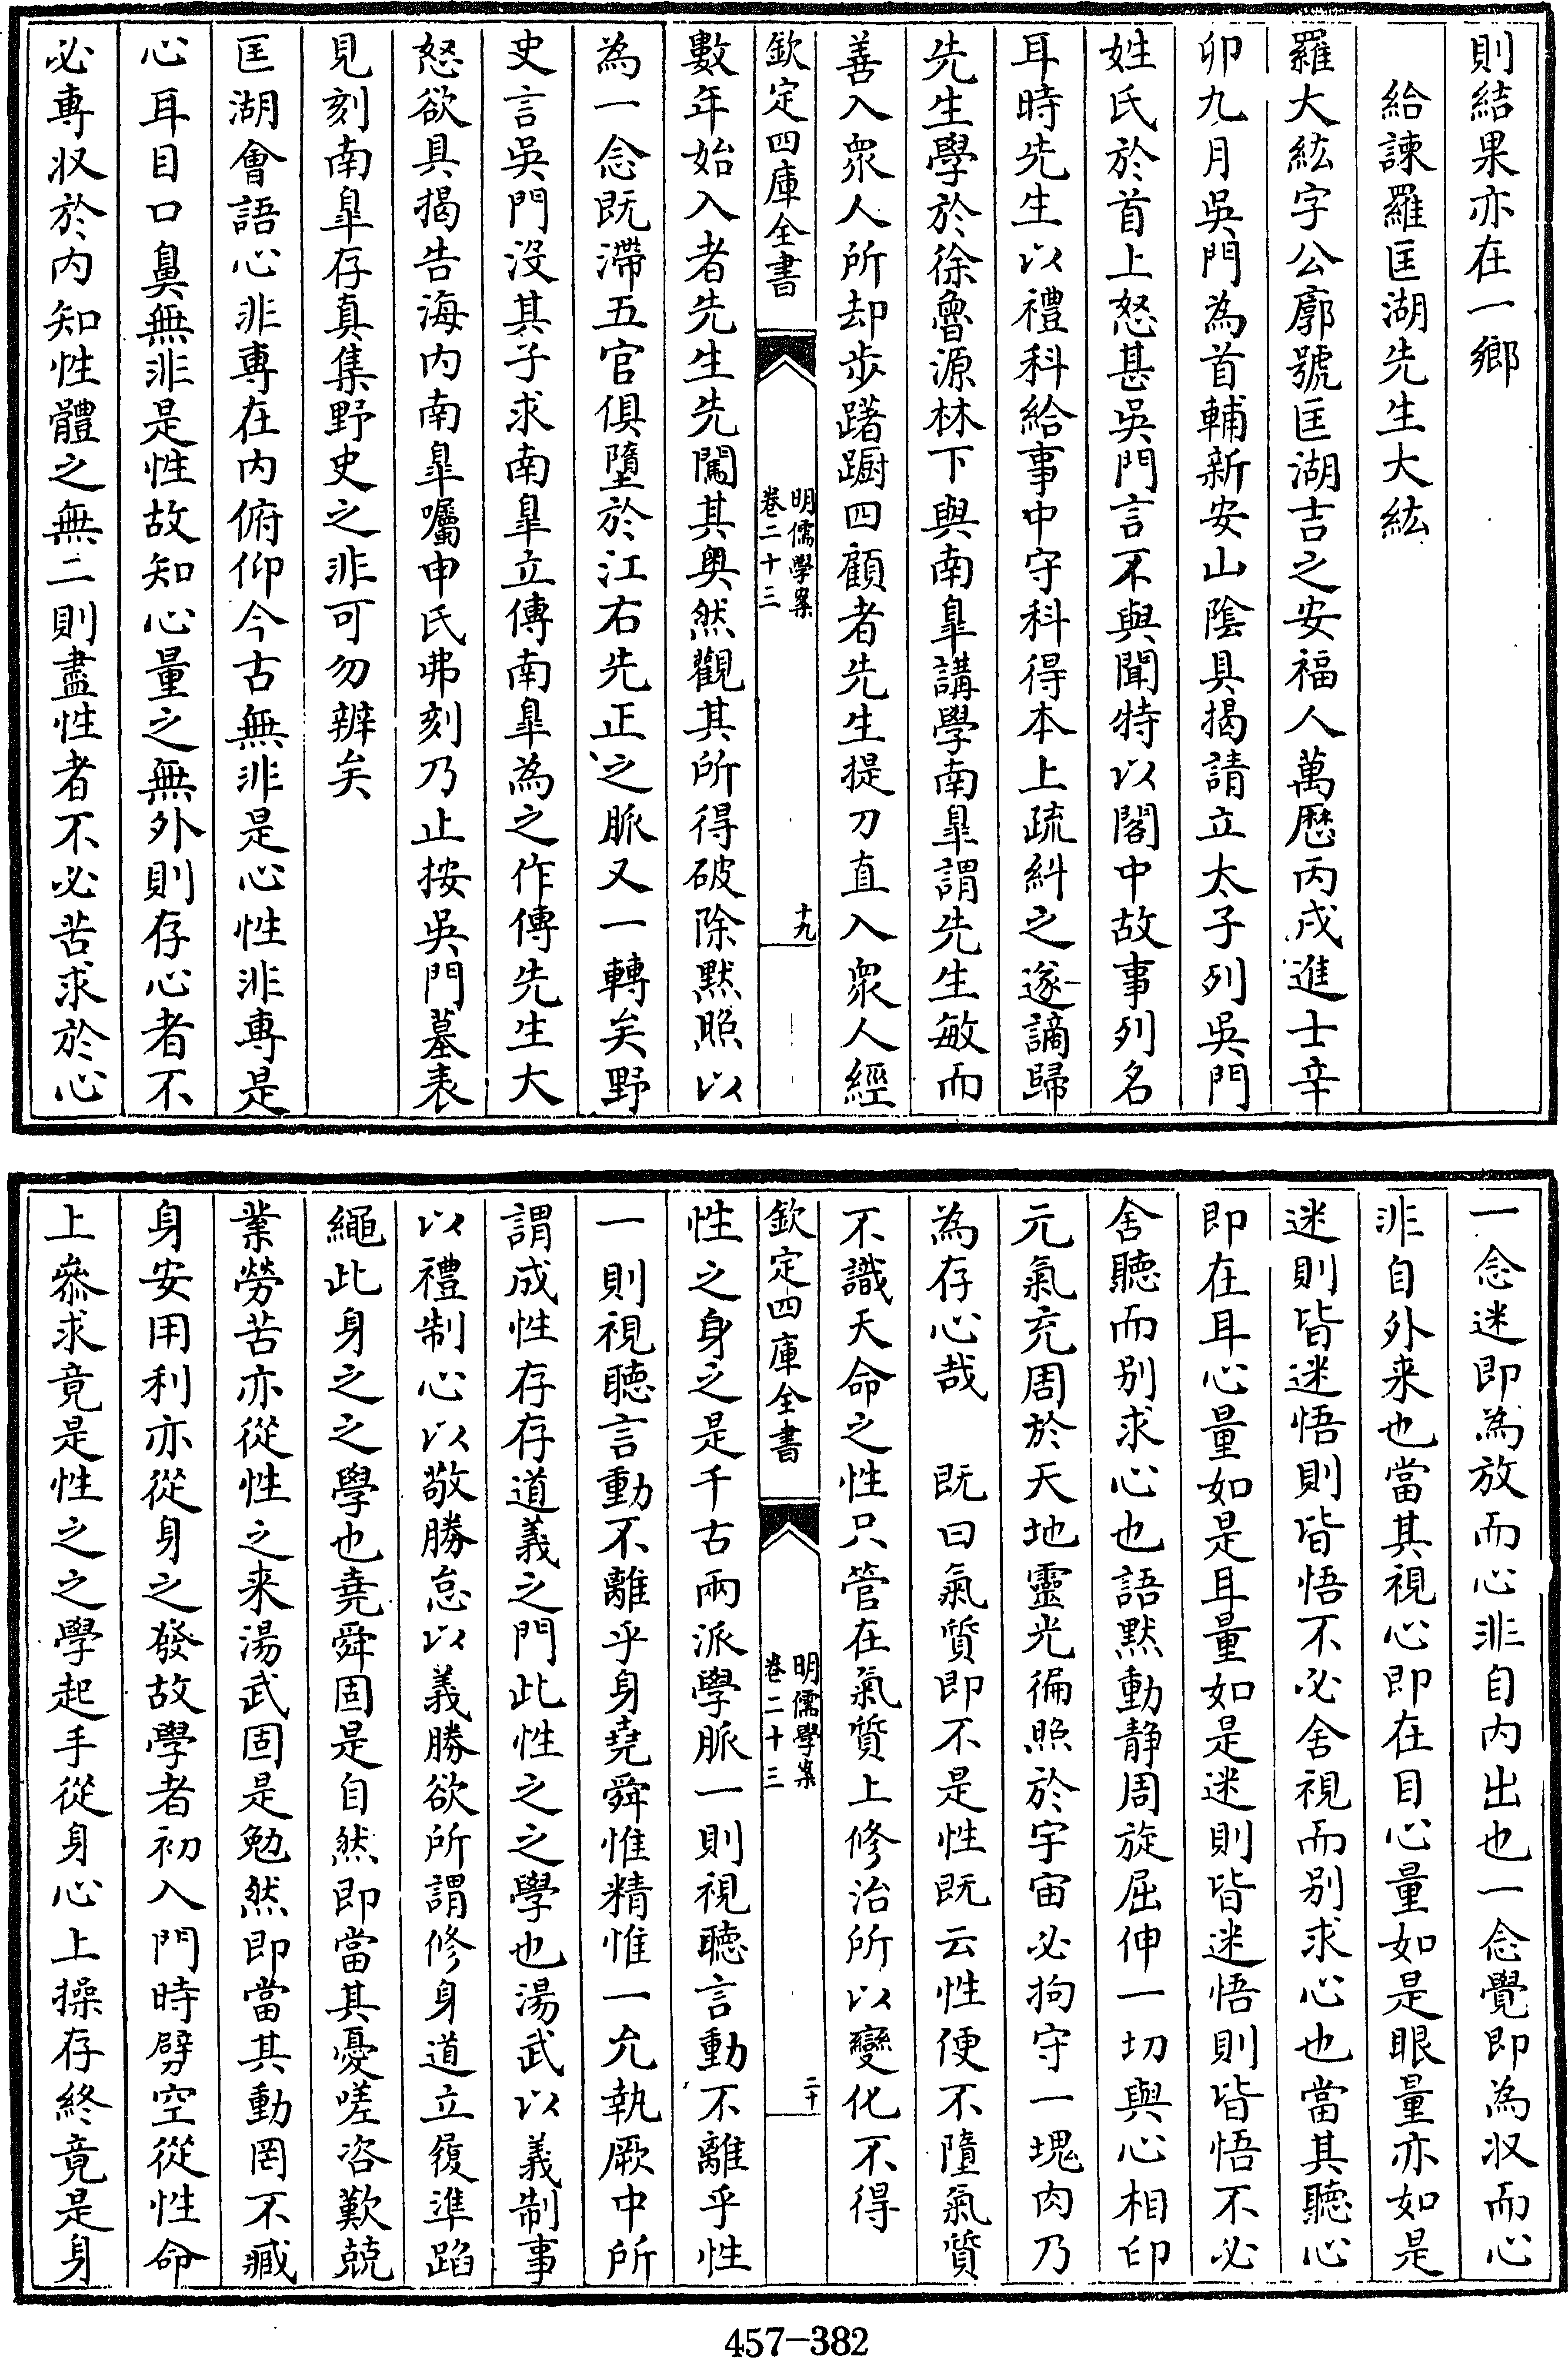 則結果亦在一鄉
給諫羅匡湖先生大紘
羅大紘字公廓號匡湖吉之安福人萬歷丙戌進士辛
卯九月吳門為首輔新安山陰具揭請立太子列吳門
姓氏於首上怒甚吳門言不與聞特以閣中故事列名
耳時先生以禮科給事中守科得本上疏糾之遂謫歸
先生學於徐魯源林下與南臯講學南臯謂先生敏而
善入衆人所却步躇蹰四顧者先生提刀直入衆人經
欽定四庫全書
明儒學案
卷二十三
十九
數年始入者先生先闖其奥然觀其所得破除默照以
為一念既滯五官俱墮於江右先正之脈又一轉矣野
史言吳門沒其子求南臯立傳南臯為之作傳先生大
怒欲具揭告海内南臯囑申氏弗刻乃止按吳門墓表
見刻南臯存真集野史之非可勿辨矣
匡湖會語心非專在内俯仰今古無非是心性非專是
心耳目口鼻無非是性故知心量之無外則存心者不
必專収於内知性體之無二則盡性者不必苦求於心
一念迷即為放而心非自内出也一念覺即為収而心
非自外来也當其視心即在目心量如是眼量亦如是
迷則皆迷悟則皆悟不必舍視而别求心也當其聽心
即在耳心量如是耳量如是迷則皆迷悟則皆悟不必
舍聽而别求心也語默動静周旋屈伸一切與心相印
元氣充周於天地靈光徧照於宇宙必拘守一塊肉乃
為存心哉　既曰氣質即不是性既云性便不墮氣質
不識天命之性只管在氣質上修治所以變化不得
欽定四庫全書
明儒學案
卷二十三
二十
性之身之是千古兩派學脈一則視聽言動不離乎性
一則視聽言動不離乎身堯舜惟精惟一允執厥中所
謂成性存存道義之門此性之之學也湯武以義制事
以禮制心以敬勝怠以義勝欲所謂修身道立履準蹈
繩此身之之學也堯舜固是自然即當其憂嗟咨歎兢
業勞苦亦從性之来湯武固是勉然即當其動罔不臧
身安用利亦從身之發故學者初入門時劈空從性命
上叅求竟是性之之學起手從身心上操存終竟是身
457-382